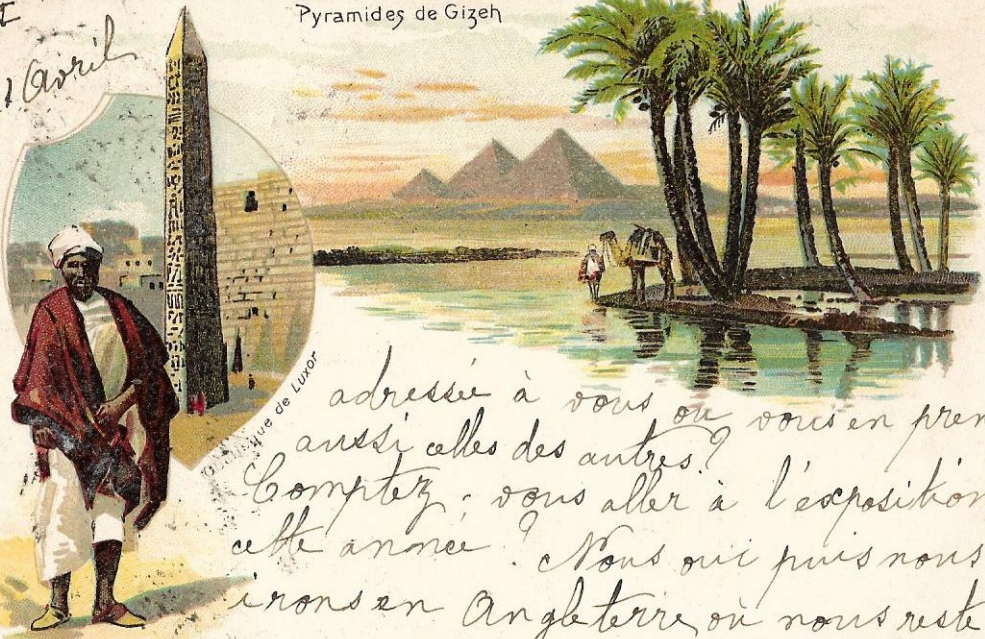 Pyramides de Gizeh
1 Avril
Obélisque de Luxor
adressée à vous ou vous en pren
aussi celles des autres?
Comptez-vous aller à l'exposition
cette année? Nous oui puis nous
irons en Angleterre, où nous reste